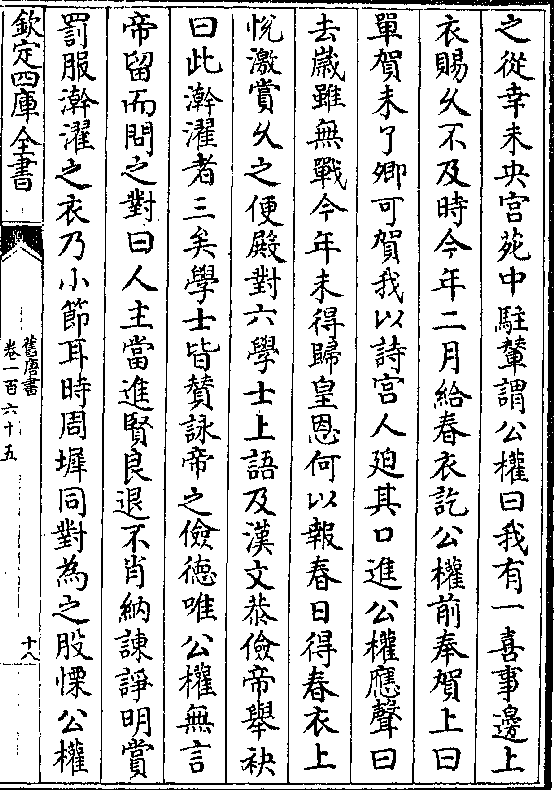 之從幸未央宮苑中駐輦謂公權曰我有一喜事邊上
衣賜久不及時今年二月給春衣訖公權前奉賀上曰
單賀未了卿可賀我以詩宮人迫其口進公權應聲曰
去歲雖無戰今年未得歸皇恩何以報春日得春衣上
悅激賞久之便殿對六學士上語及漢文恭儉帝舉袂
曰此澣濯者三矣學士皆贊詠帝之儉德唯公權無言
帝留而問之對曰人主當進賢良退不肖納諫諍明賞
罰服澣濯之衣乃小節耳時周墀同對為之股慄公權
欽定四庫全書
舊唐書
卷一百六十五
十八